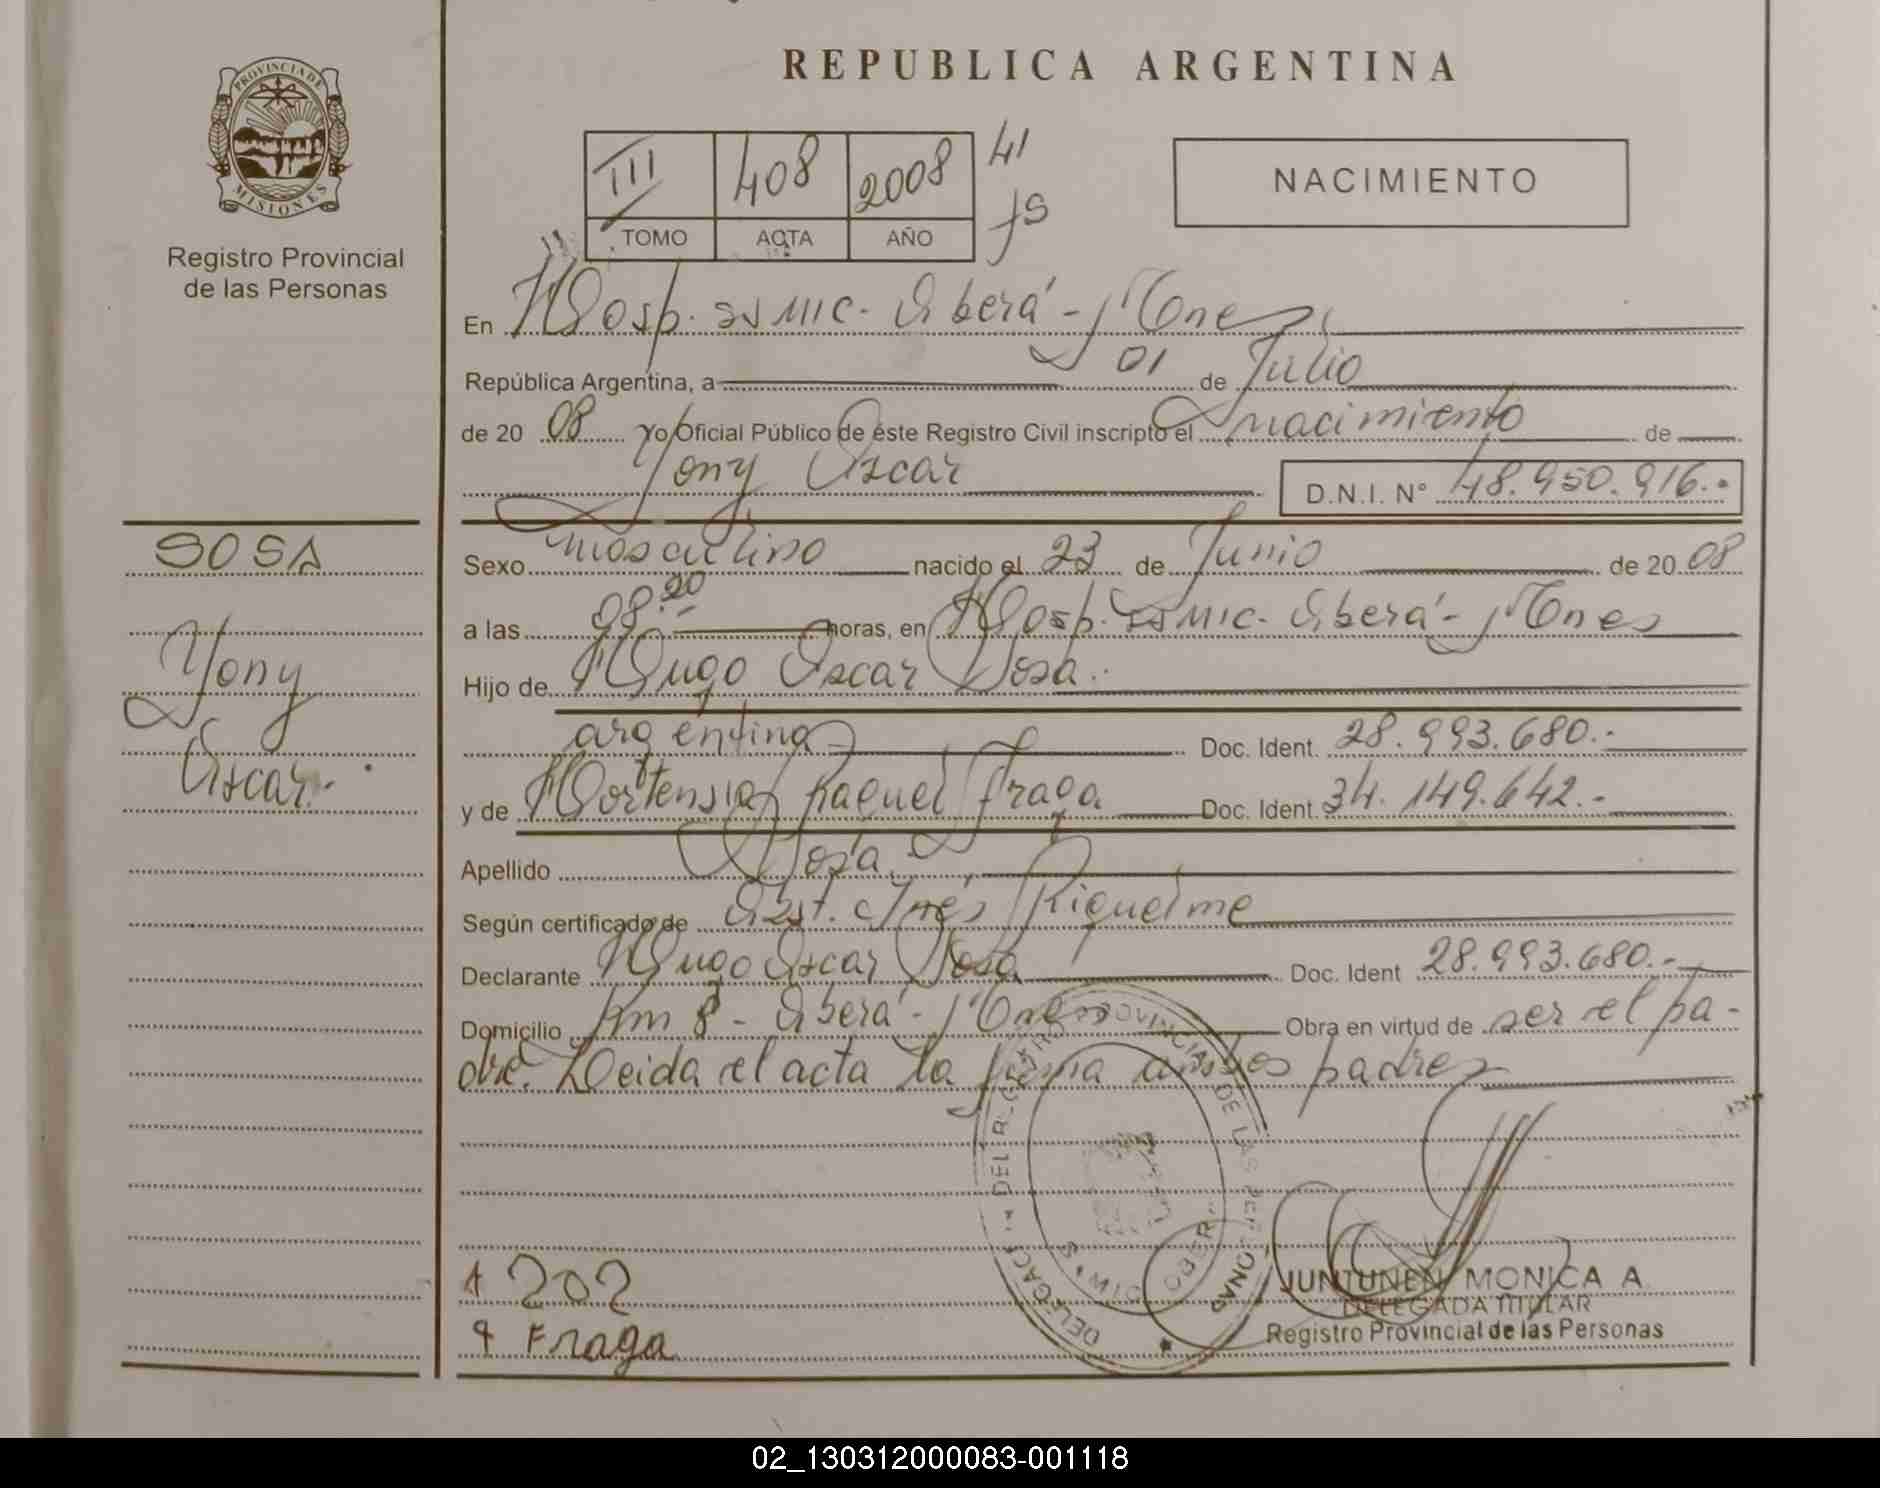 REPUBLICA ARGENTINA
PROVINCIA DE
MISIONES
Registro Provincial
de las Personas
III 408 2008 41
TOMO ACTA AÑO
NACIMIENTO
En Hosp. SSMIC. Oberá - Mnes
República Argentina, a 01 de Julio
de 20 08 Yo Oficial Público de éste Registro Civil inscripto el nacimiento de
Yony Oscar D.N.I. N° 48.950.916.-
SOSA
Yony
Oscar.-
Sexo masculino nacido el 23 de Junio de 20 08
a las 08:20 horas, en Hosp. SSMIC. Oberá - Mnes
Hijo de Hugo Oscar Sosa.
argentina Doc. Ident. 28.993.680.-
y de Hortensia Raquel Fraga Doc. Ident. 34.149.642.-
Apellido Sosa
Según certificado de Obst. Inés Riquelme
Declarante Hugo Oscar Sosa Doc. Ident 28.993.680.-
Domicilio Km 8 - Oberá - Mnes Obra en virtud de ser el pa-
dre. Leida el acta la firma ambos padres
JUNTUNEN MONICA A.
DELEGADA TITULAR
Registro Provincial de las Personas
Fraga
02_130312000083-001118